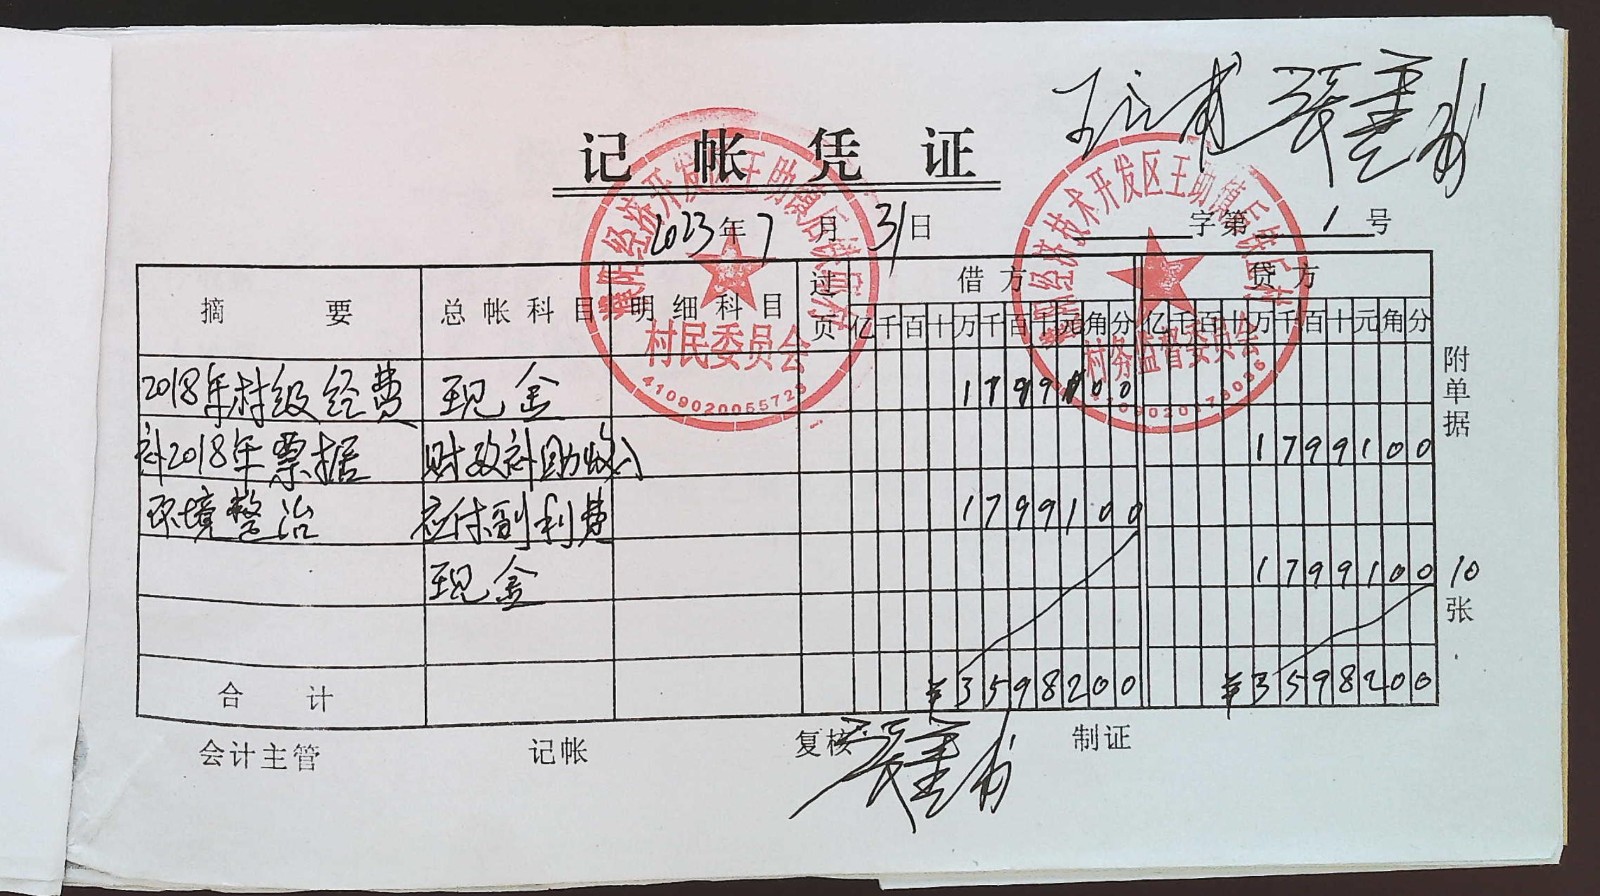 记帐凭证
2023年7月31日
字第1号
摘要 总帐科目 明细科目 过页 借方 贷方
亿千百十万千百十元角分 亿千百十万千百十元角分
2018年村级经费 现金 1799100
补2018年票据 财政补助收入 1799100
环境整治 应付福利费 1799100
现金 1799100
合计 ¥3598200 ¥3598200
附单据10张
会计主管 记帐 复核 制证
濮阳经济技术开发区王助镇
村民委员会
4109020055723
濮阳经济技术开发区王助镇
村务监督委员会